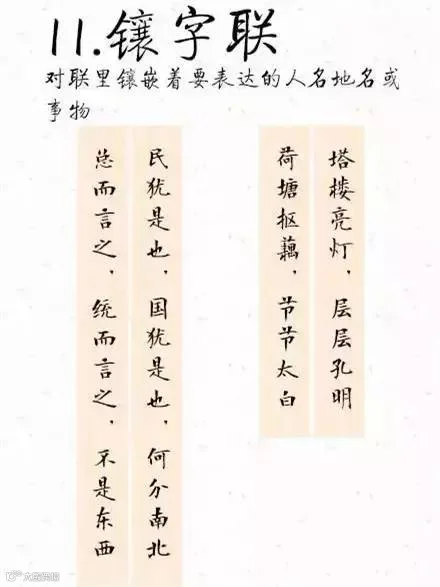 11.镶字联
对联里镶嵌着要表达的人名地名或
事物
塔楼亮灯，层层孔明
荷塘抠藕，节节太白
民犹是也，国犹是也，何分南北
总而言之，统而言之，不是东西